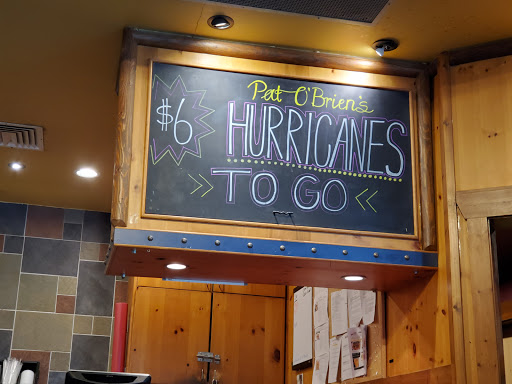 Pat O'Brien's
$6 HURRICANES
>> TO GO <<